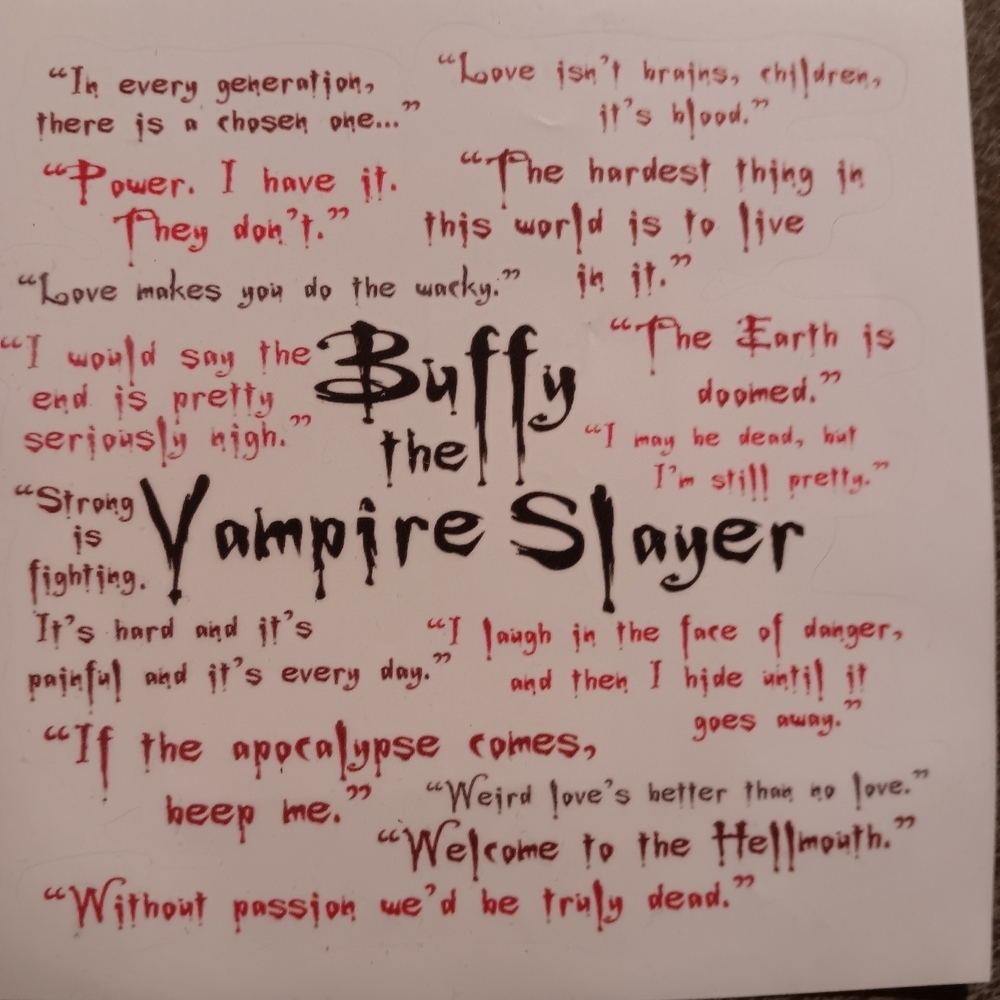 “In every generation,
there is a chosen one...”
“Love isn’t brains, children,
it’s blood.”
“Power. I have it.
They don’t.”
“The hardest thing in
this world is to live
in it.”
“Love makes you do the wacky.”
“I would say the
end is pretty
seriously nigh.”
Buffy
the
Vampire Slayer
“The Earth is
doomed.”
“I may be dead, but
I’m still pretty.”
“Strong
is
fighting.
It’s hard and it’s
painful and it’s every day.”
“I laugh in the face of danger,
and then I hide until it
goes away.”
“If the apocalypse comes,
beep me.”
“Weird love’s better than no love.”
“Welcome to the Hellmouth.”
“Without passion we’d be truly dead.”